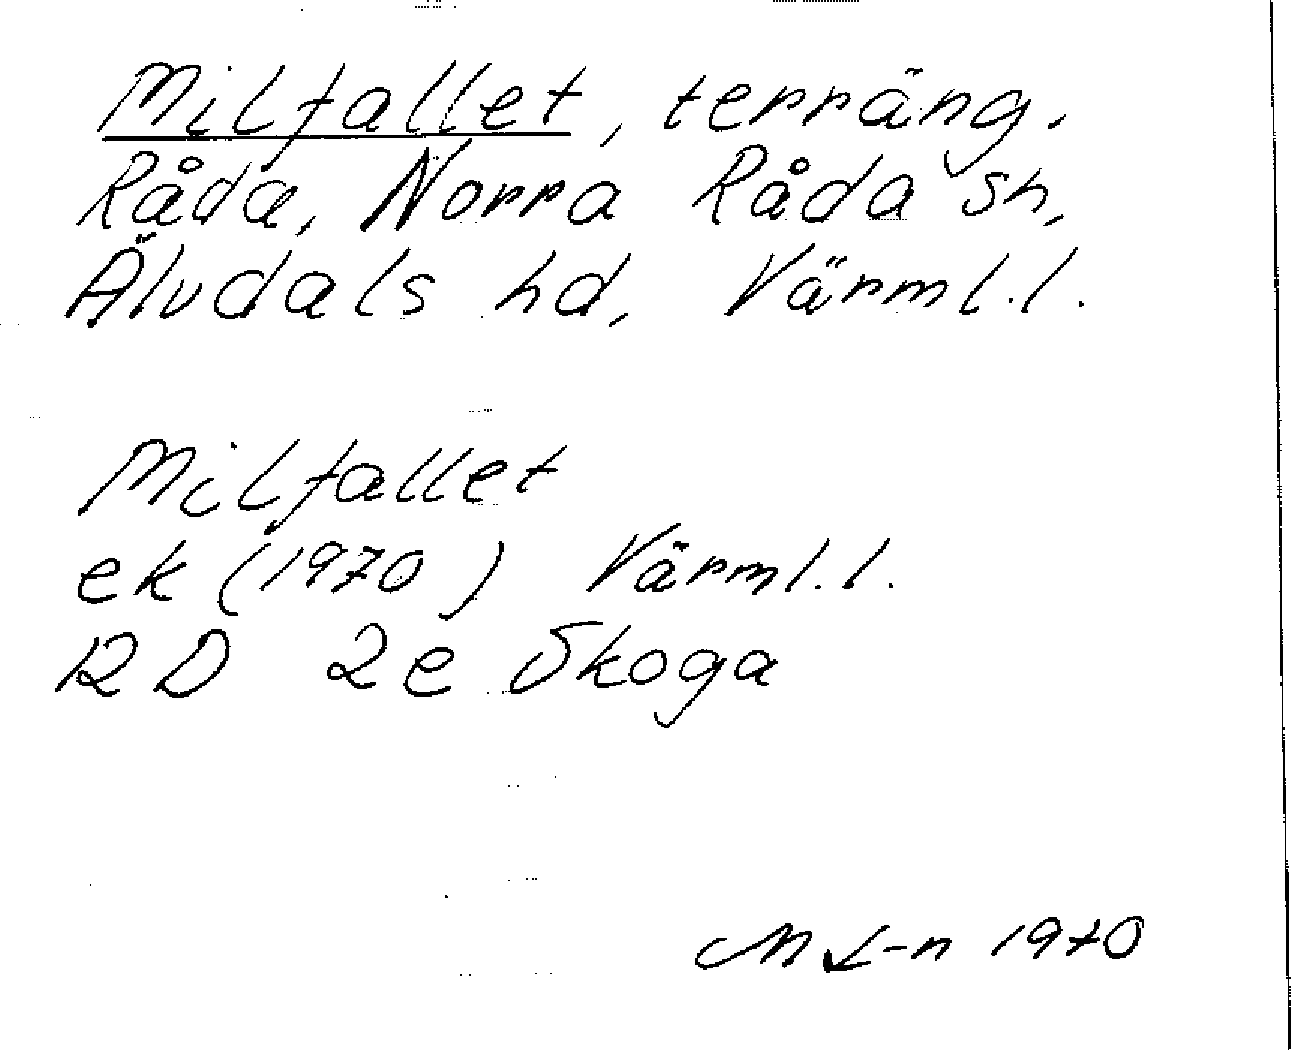 Milfallet, terräng.
Råda, Norra Råda sn,
Älvdals hd, Värml.l.
Milfallet
ek (1970) Värml.l.
12 D 2e Skoga
M L-n 1970